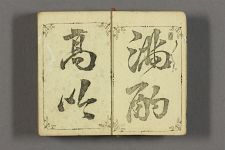 満酌
高吟